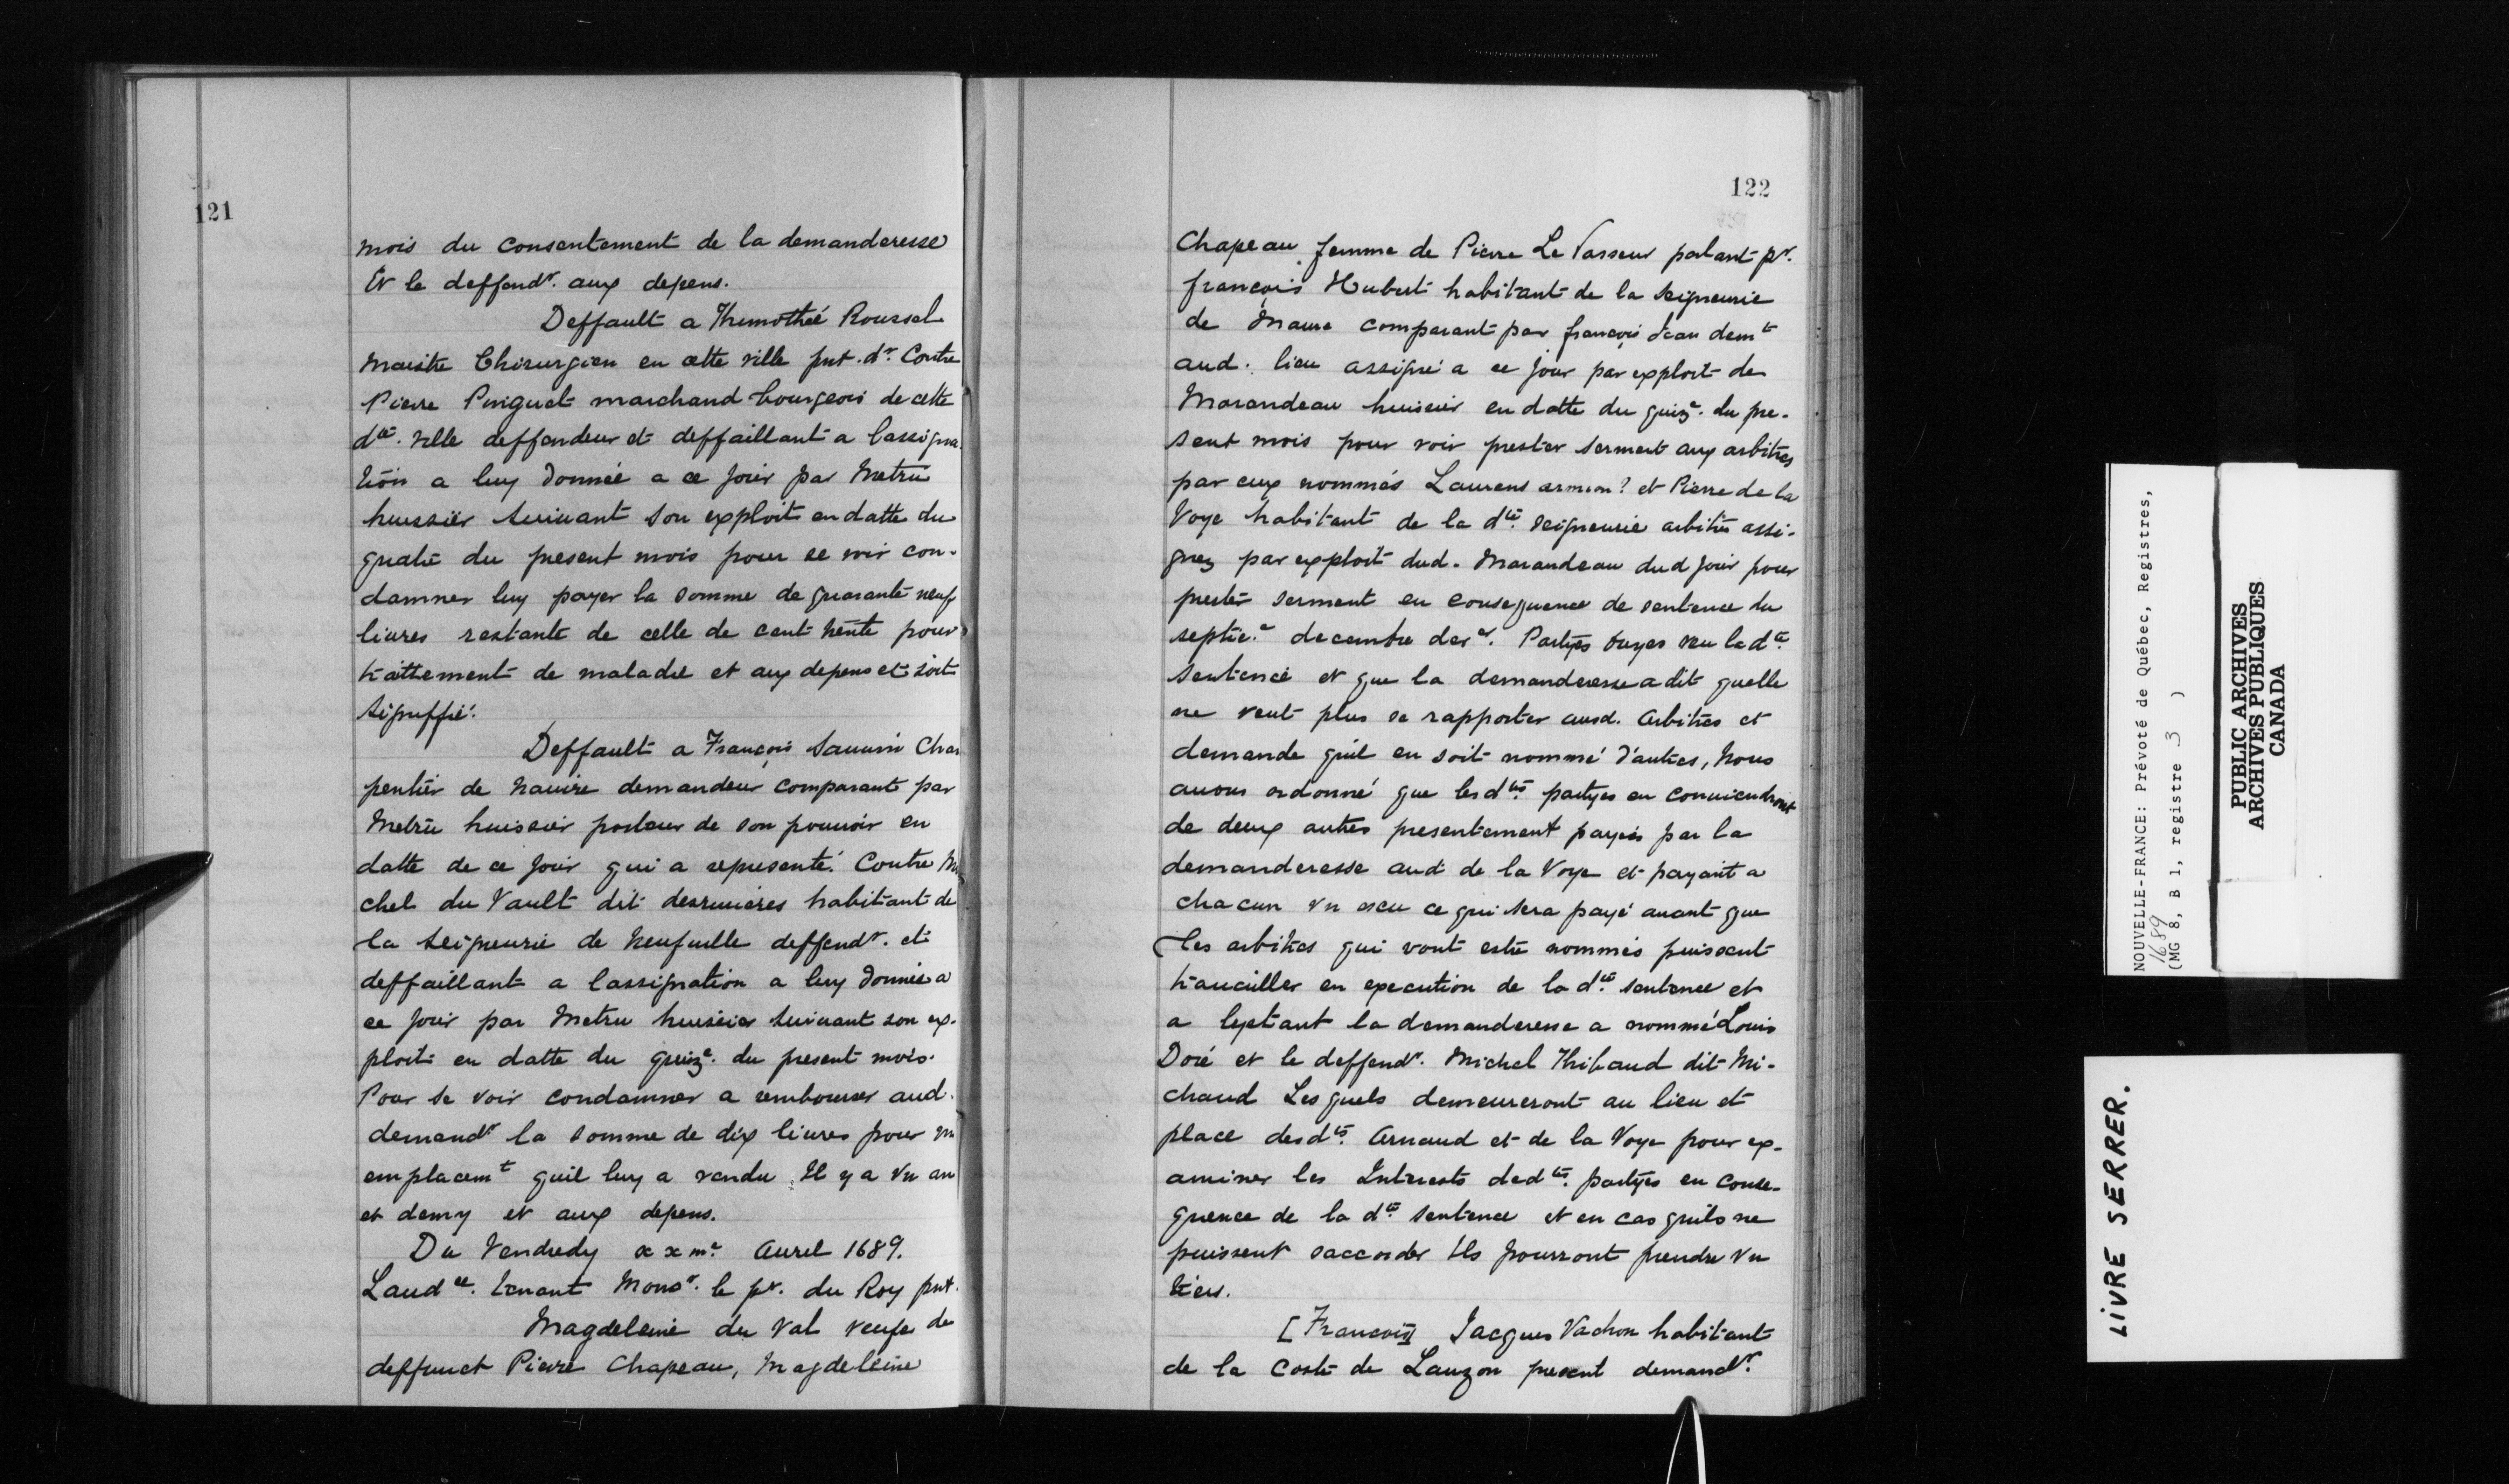 121
mois du consentement de la demanderesse
Et le deffendr. aux depens.
Deffault a Themothéé Roussel
Maistre Chirurgien en cette ville pnt. dr. Contre
Pierre Poignet marchand bourgeois de cette
dte. ville deffendeur et deffaillant a lassigna
tion a luy donnée a ce jour par Metru
huissier suiuant son exploit en datte du
quatre du present mois pour se voir con-
damner luy payer la somme de quarante neuf
liures restante de celle de cent trente pour
traittement de maladie et aux depens et soit
signiffié.
Deffault a François Sauuin Char
pentier de nauire demandeur comparant par
Metru huissier porteur de son pouuoir en
datte de ce jour qui a representé. Contre Mi
chel du Vault dit desruieres habitant de
la Seigneurie de Neufuille deffendr. et
deffaillant a lassignation a luy donnée a
ce jour par Metru huissier suiuant son ex-
ploit en datte du quize. du present mois.
Pour se voir condamner a rembourser aud.
demandr. la somme de dix liures pour vn
emplacemt quil luy a vendu Il y a vn an
et demy et aux depens.
Du Vendredy xxme. Auril 1689.
Laudce. tenant Monsr. le pr. du Roy pnt.
Magdeleine du Val veufe de
deffunct Pierre Chapeau, Magdeleine
122
Chapeau femme de Pierre Le Vasseur parlant pr.
françois Hubert habitant de la seigneurie
de Maure comparant par françois Jean demt
aud. lieu assigné a ce jour par exploit de
Marandeau huissier en datte du quize. du pre-
sent mois pour voir prester serment aux arbitres
par eux nommés Laurens armon? et Pierre de la
Voye habitant de la dte. seigneurie arbitre assi-
gnez par exploit dud. Marandeau dud jour pour
prester serment en consequence de sentence du
septie.e decembre der.er Partyes ouyes veu lad.te
sentence et que la demanderesse a dit quelle
ne veut plus se rapporter ausd. arbitres et
demande quil en soit nommé d'autres, Nous
auons ordonné que lesdtes partyes en conuiendront
de deux autres presentement payés par la
demanderesse aud de la Voye et payant a
chacun vn escu ce qui sera payé auant que
les arbitres qui vont estre nommés puissent
trauailler en execution de la dte. sentence et
a lynstant la demanderesse a nommé Louis
Doré et le deffendr. Michel Thibaud dit Mi-
chaud Lesquels demeureront au lieu et
place desdts. Arnaud et de la Voye pour ex-
aminer les Interests desdtes. partyes en conse-
quence de la dte sentence et en cas quils ne
puissent saccorder Ils pourront prendre vn
tiers.
[François] Jacques Vachon habitant
de la coste de Lauzon present demandr.
NOUVELLE-FRANCE: Prévoté de Québec, Registres,
1689
(MG 8, B 1, registre 3 )
PUBLIC ARCHIVES
ARCHIVES PUBLIQUES
CANADA
LIVRE SERRER.